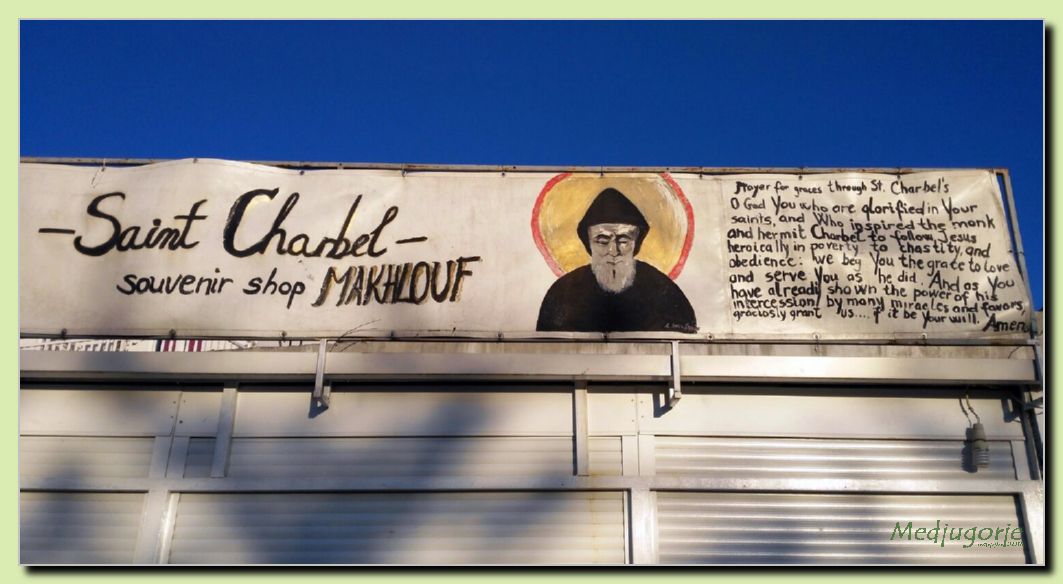 - Saint Charbel -
souvenir shop MAKHLOUF
Prayer for graces through St. Charbel's
O God You who are glorified in Your
saints, and Who inspired the monk
and hermit Charbel to follow Jesus
heroically in poverty to chastity, and
obedience: We beg You the grace to love
and serve You as he did. And as You
have alreadi shown the power of his
intercession by many miracles and favors,
graciosly grant us.... if it be your will. Amen
Medjugorje